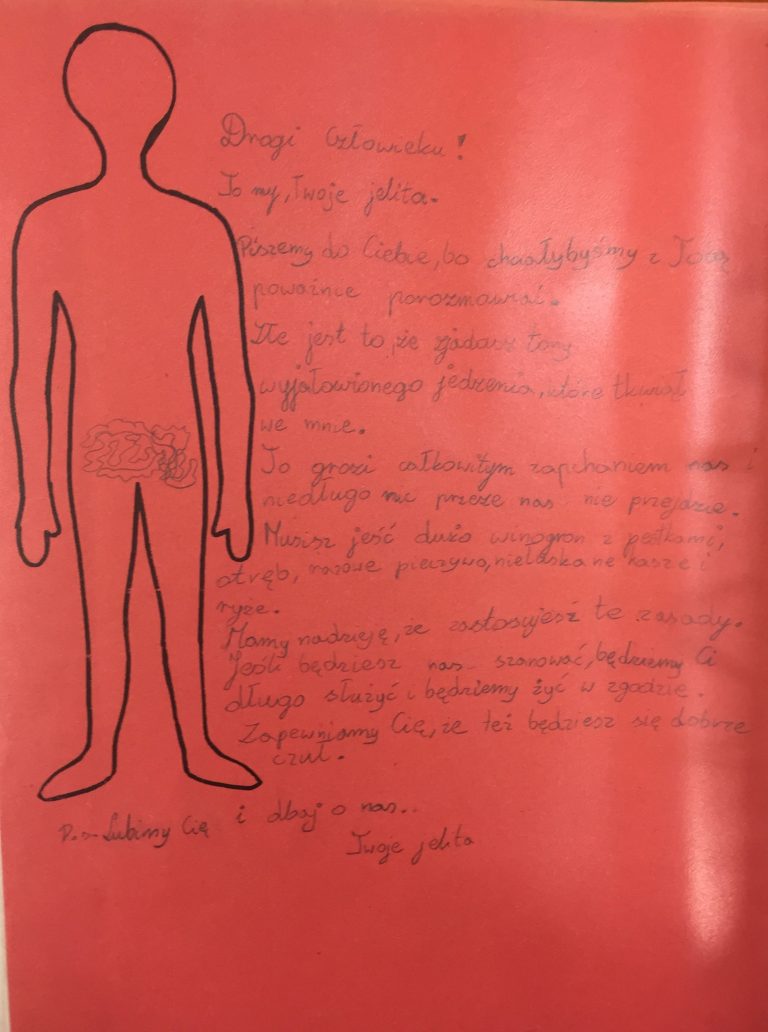 Drogi Człowieku!
To my, Twoje jelita.
Piszemy do Ciebie, bo chciałybyśmy z Tobą
poważnie porozmawiać.
Złe jest to, że zjadasz tony
wyjałowionego jedzenia, które tkwią
we mnie.
To grozi całkowitym zapchaniem nas i
niedługo nic przeze nas nie przejdzie.
Musisz jeść dużo winogron z pestkami,
otręb, razowe pieczywo, niełuskane kasze i
ryże.
Mamy nadzieję, że zastosujesz te zasady.
Jeśli będziesz nas szanować, będziemy Ci
długo służyć i będziemy żyć w zgodzie.
Zapewniamy Cię, że też będziesz się dobrze
czuł.
P.s Lubimy Cię i dbaj o nas..
Twoje jelita